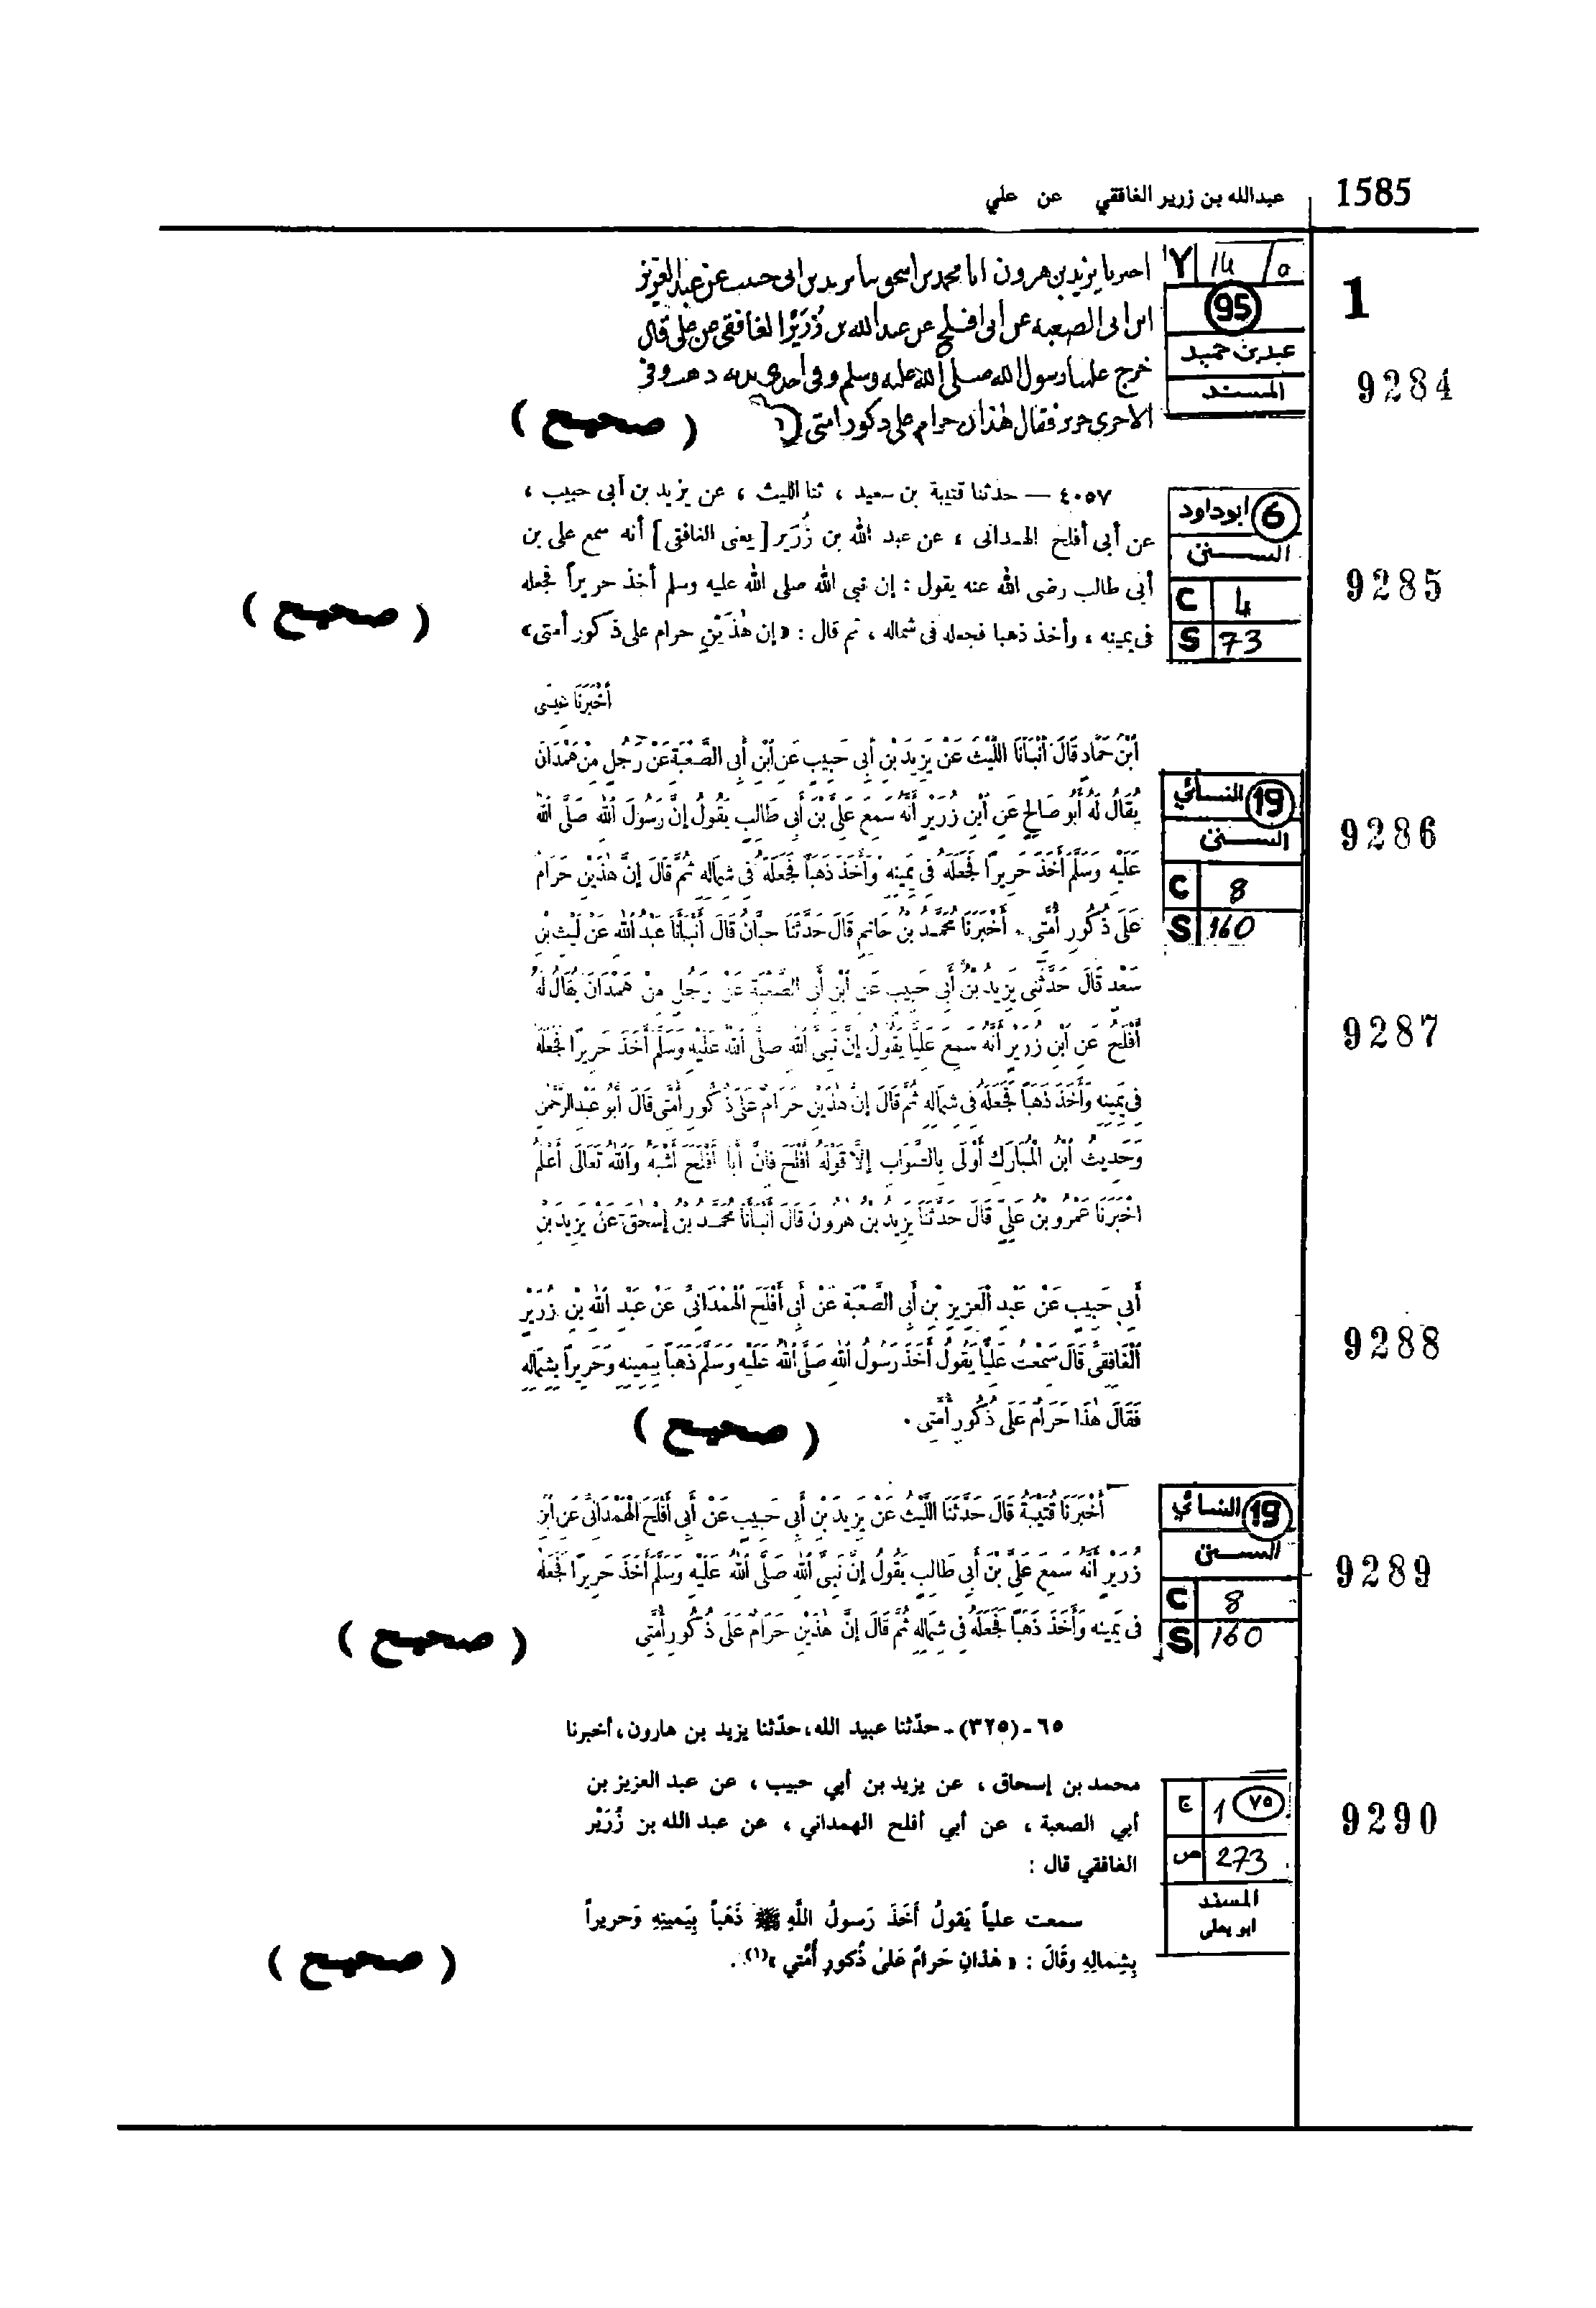 1585 عبدالله بن زرير الغافقي عن علي
1
٧ 14/ه
95
عبد بن حميد
المسند
9284
احبرنا يزيد بن هرون انا محمد بن اسحق نا يزيد بن ابى حبيب عن عبد العزيز
ابن ابى الصعبة عن ابى افلح عن عبد الله بن زُرَيْر الغافقى عن على قال
خرج علينا رسول الله صلى الله عليه وسلم وفى احدى يديه ذهب وفى
الاخرى حرير فقال هذان حرام على ذكور امتى
( صحيح )
6 ابوداود
السنن
C 4
S 73
9285
٤٠٥٧ — حدثنا قتيبة بن سعيد ، ثنا الليث ، عن يزيد بن أبى حبيب ،
عن أبى أفلح الهمدانى ، عن عبد الله بن زُرَير [ يعنى الغافقى ] أنه سمع على بن
أبى طالب رضى الله عنه يقول : إن نبى الله صلى الله عليه وسلم أخذ حريراً فجعله
فى يمينه ، وأخذ ذهبا فجعله فى شماله ، ثم قال : « إن هٰذَيْنِ حرام على ذكور أمتى »
( صحيح )
أَخْبَرَنَا عِيسَى
19 النسائي
السنن
C 8
S 160
9286
ابْنُ حَمَّادٍ قَالَ أَنْبَأَنَا اللَّيْثُ عَنْ يَزِيدَ بْنِ أَبِى حَبِيبٍ عَنِ ابْنِ أَبِى الصَّعْبَةِ عَنْ رَجُلٍ مِنْ هَمْدَانَ
يُقَالُ لَهُ أَبُو صَالِحٍ عَنِ ابْنِ زُرَيْرٍ أَنَّهُ سَمِعَ عَلِىَّ بْنَ أَبِى طَالِبٍ يَقُولُ إِنَّ رَسُولَ اللهِ صَلَّى اللهُ
عَلَيْهِ وَسَلَّمَ أَخَذَ حَرِيرًا فَجَعَلَهُ فِى يَمِينِهِ وَأَخَذَ ذَهَبًا فَجَعَلَهُ فِى شِمَالِهِ ثُمَّ قَالَ إِنَّ هٰذَيْنِ حَرَامٌ
عَلَى ذُكُورِ أُمَّتِى . أَخْبَرَنَا مُحَمَّدُ بْنُ حَاتِمٍ قَالَ حَدَّثَنَا حِبَّانُ قَالَ أَنْبَأَنَا عَبْدُ اللهِ عَنْ لَيْثِ بْنِ
9287
سَعْدٍ قَالَ حَدَّثَنِى يَزِيدُ بْنُ أَبِى حَبِيبٍ عَنِ ابْنِ أَبِى الصَّعْبَةِ عَنْ رَجُلٍ مِنْ هَمْدَانَ يُقَالُ لَهُ
أَفْلَحُ عَنِ ابْنِ زُرَيْرٍ أَنَّهُ سَمِعَ عَلِيًّا يَقُولُ إِنَّ نَبِىَّ اللهِ صَلَّى اللهُ عَلَيْهِ وَسَلَّمَ أَخَذَ حَرِيرًا فَجَعَلَهُ
فِى يَمِينِهِ وَأَخَذَ ذَهَبًا فَجَعَلَهُ فِى شِمَالِهِ ثُمَّ قَالَ إِنَّ هٰذَيْنِ حَرَامٌ عَلَى ذُكُورِ أُمَّتِى قَالَ أَبُو عَبْدِ الرَّحْمٰنِ
وَحَدِيثُ ابْنِ الْمُبَارَكِ أَوْلَى بِالصَّوَابِ إِلَّا قَوْلَهُ أَفْلَحَ فَإِنَّ أَبَا أَفْلَحَ أَشْبَهُ وَاللهُ تَعَالَى أَعْلَمُ
أَخْبَرَنَا عَمْرُو بْنُ عَلِىٍّ قَالَ حَدَّثَنَا يَزِيدُ بْنُ هٰرُونَ قَالَ أَنْبَأَنَا مُحَمَّدُ بْنُ إِسْحٰقَ عَنْ يَزِيدَ بْنِ
9288
أَبِى حَبِيبٍ عَنْ عَبْدِ الْعَزِيزِ بْنِ أَبِى الصَّعْبَةِ عَنْ أَبِى أَفْلَحَ الْهَمْدَانِىِّ عَنْ عَبْدِ اللهِ بْنِ زُرَيْرٍ
الْغَافِقِىِّ قَالَ سَمِعْتُ عَلِيًّا يَقُولُ أَخَذَ رَسُولُ اللهِ صَلَّى اللهُ عَلَيْهِ وَسَلَّمَ ذَهَبًا بِيَمِينِهِ وَحَرِيرًا بِشِمَالِهِ
فَقَالَ هٰذَا حَرَامٌ عَلَى ذُكُورِ أُمَّتِى .
( صحيح )
19 النسائي
السنن
C 8
S 160
9289
أَخْبَرَنَا قُتَيْبَةُ قَالَ حَدَّثَنَا اللَّيْثُ عَنْ يَزِيدَ بْنِ أَبِى حَبِيبٍ عَنْ أَبِى أَفْلَحَ الْهَمْدَانِىِّ عَنِ ابْنِ
زُرَيْرٍ أَنَّهُ سَمِعَ عَلِىَّ بْنَ أَبِى طَالِبٍ يَقُولُ إِنَّ نَبِىَّ اللهِ صَلَّى اللهُ عَلَيْهِ وَسَلَّمَ أَخَذَ حَرِيرًا فَجَعَلَهُ
فِى يَمِينِهِ وَأَخَذَ ذَهَبًا فَجَعَلَهُ فِى شِمَالِهِ ثُمَّ قَالَ إِنَّ هٰذَيْنِ حَرَامٌ عَلَى ذُكُورِ أُمَّتِى
( صحيح )
٦٥ - (٣٢٥) - حدّثنا عبيد الله، حدّثنا يزيد بن هارون، أخبرنا
٧٥ 1 ج
273 ص
المسند
ابو يعلى
9290
محمد بن إسحاق ، عن يزيد بن أبي حبيب ، عن عبد العزيز بن
أبي الصعبة ، عن أبي أفلح الهمداني ، عن عبد الله بن زُرَيْر
الغافقي قال :
سمعت علياً يَقولُ أَخَذَ رَسولُ اللَّهِ ﷺ ذَهَباً بِيَمينِهِ وَحريراً
بِشِمالِهِ وقَالَ : « هٰذانِ حَرامٌ عَلىٰ ذُكورِ أُمَّتي »(١).
( صحيح )